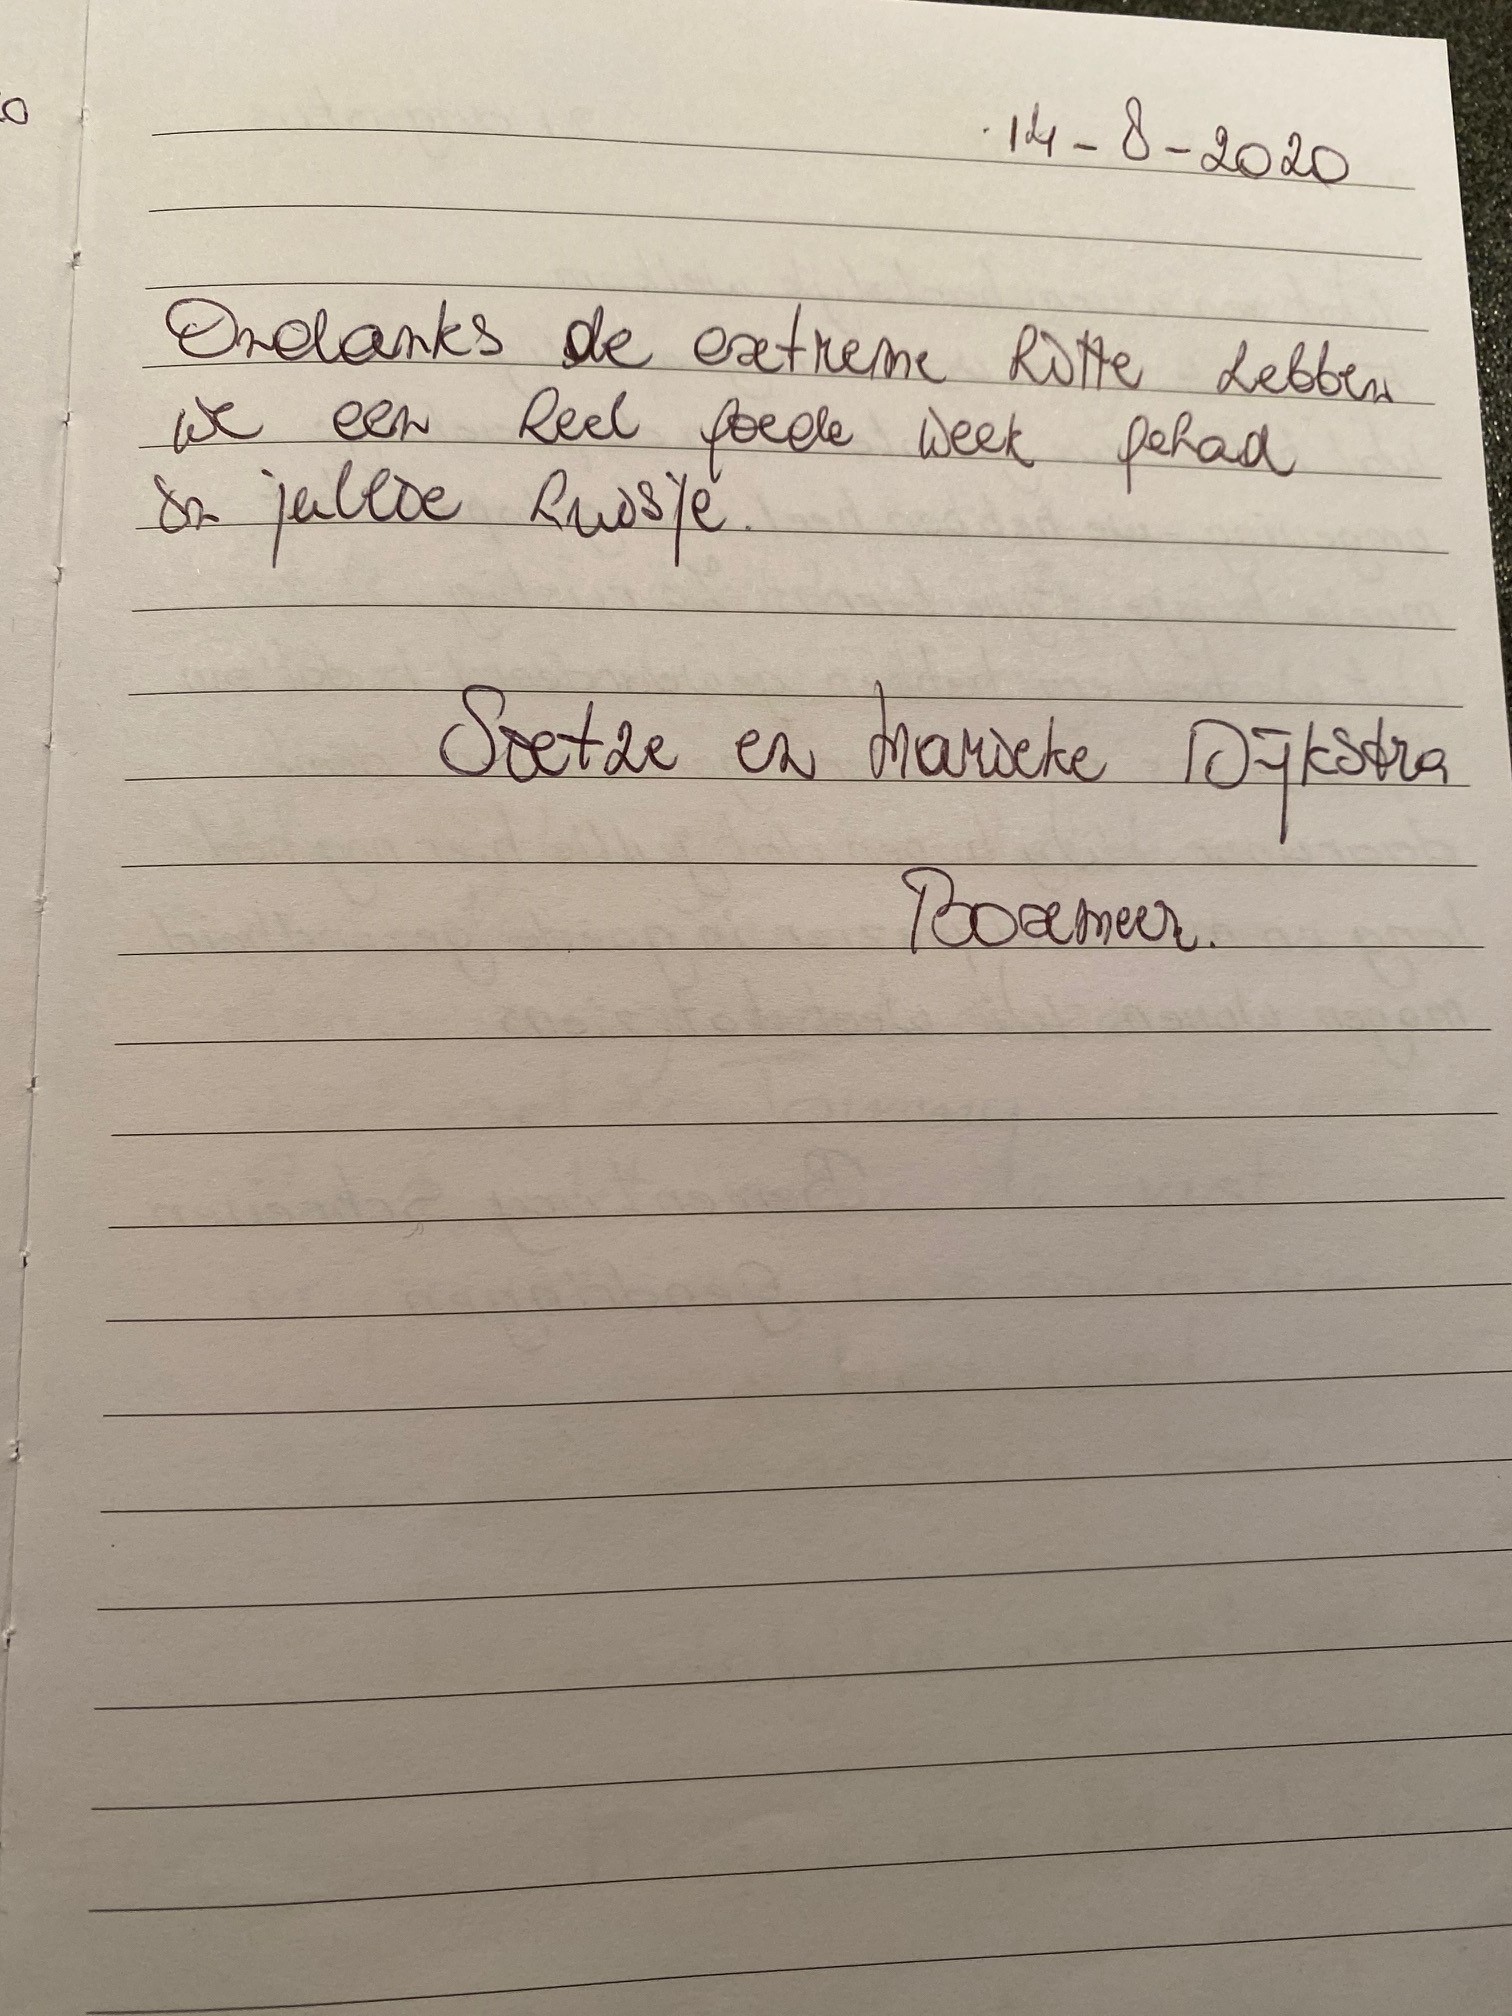 14-8-2020
Ondanks de extreme hitte hebben
we een heel goede week gehad
in jullie huisje.
Soetze en Marieke Dijkstra
Boxmeer.